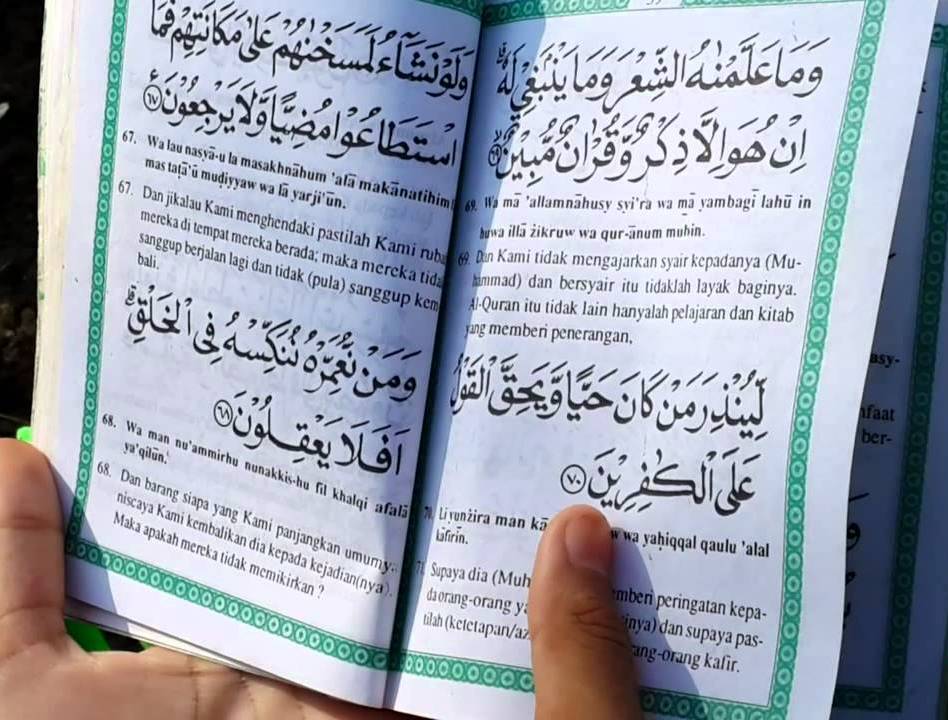 وَلَوْنَشَآءُ لَمَسَخْنٰهُمْ عَلٰى مَكَانَتِهِمْ فَمَا
اسْتَطَاعُوْا مُضِيًّا وَّلَا يَرْجِعُوْنَ ࣖ ٦٧
67. Wa lau nasyā-u la masakhnāhum 'alā makānatihim
mas taṭā'ū muḍiyyaw wa lā yarji'ūn.
67. Dan jikalau Kami menghendaki pastilah Kami ruba
mereka di tempat mereka berada; maka mereka tida
sanggup berjalan lagi dan tidak (pula) sanggup kem
bali.
وَمَنْ نُّعَمِّرْهُ نُنَكِّسْهُ فِى الْخَلْقِۗ
اَفَلَا يَعْقِلُوْنَ ٦٨
68. Wa man nu'ammirhu nunakkis-hu fil khalqi afalā
ya'qilūn.
68. Dan barang siapa yang Kami panjangkan umurny
niscaya Kami kembalikan dia kepada kejadian(nya).
Maka apakah mereka tidak memikirkan ?
وَمَا عَلَّمْنٰهُ الشِّعْرَ وَمَا يَنْۢبَغِيْ لَهٗۗ
اِنْ هُوَ اِلَّا ذِكْرٌ وَّقُرْاٰنٌ مُّبِيْنٌۙ ٦٩
69. Wa mā 'allamnāhusy syi'ra wa mā yambagī lahū in
huwa illā żikruw wa qur-ānum mubin.
69. Dan Kami tidak mengajarkan syair kepadanya (Mu-
hammad) dan bersyair itu tidaklah layak baginya.
Al-Quran itu tidak lain hanyalah pelajaran dan kitab
yang memberi penerangan,
لِّيُنْذِرَ مَنْ كَانَ حَيًّا وَّيَحِقَّ الْقَوْلُ
عَلَى الْكٰفِرِيْنَ ٧٠
70. Liyunżira man kā w wa yaḥiqqal qaulu 'alal
kāfirīn.
70. Supaya dia (Muh mberi peringatan kepa-
da orang-orang ya inya) dan supaya pas-
tilah (ketetapan/az ang-orang kafir.
asy-
nfaat
ber-